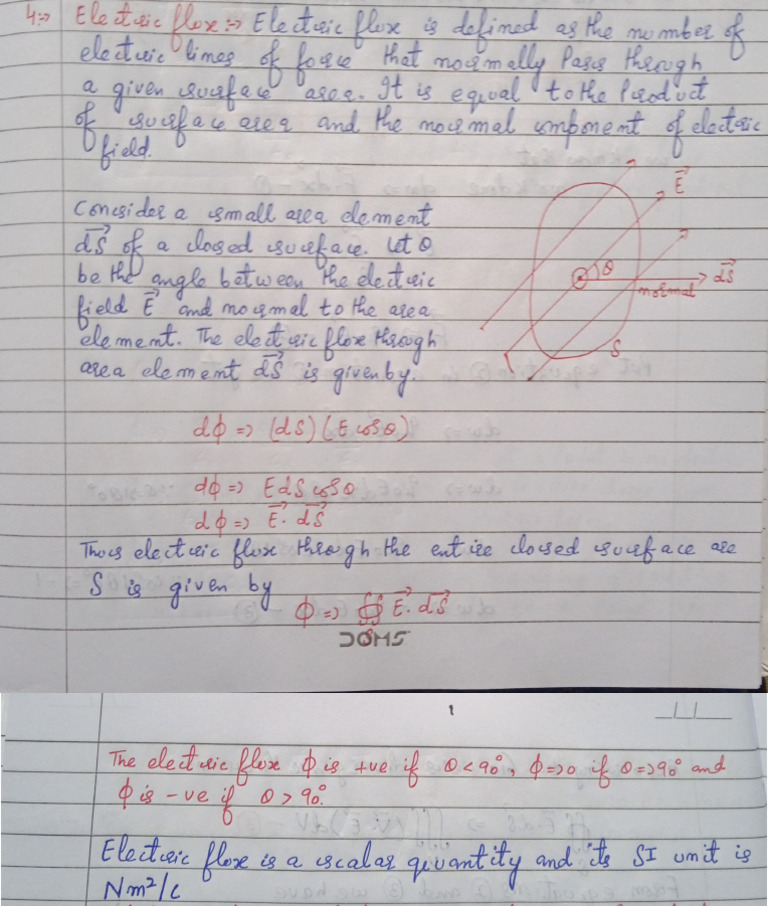 4:→ Electric flux :→ Electric flux is defined as the number of
electric lines of force that normally Pass through
a given surface area. It is equal to the Product
of surface area and the normal component of electric
field.
Consider a small area element
dS⃗ of a closed surface. Let θ
be the angle between the electric
field E⃗ and normal to the area
element. The electric flux through
area element dS⃗ is given by.
E⃗
θ
dS⃗
normal
S
dφ => (dS) (E cosθ)
dφ => E dS cosθ
dφ => E⃗ . dS⃗
Thus electric flux through the entire closed surface are
S is given by
φ => ∯ E⃗ . dS⃗
S
DOMS
The electric flux φ is +ve if θ < 90°, φ => 0 if θ => 90° and
φ is -ve if θ > 90°.
Electric flux is a scalar quantity and its SI unit is
Nm²/c